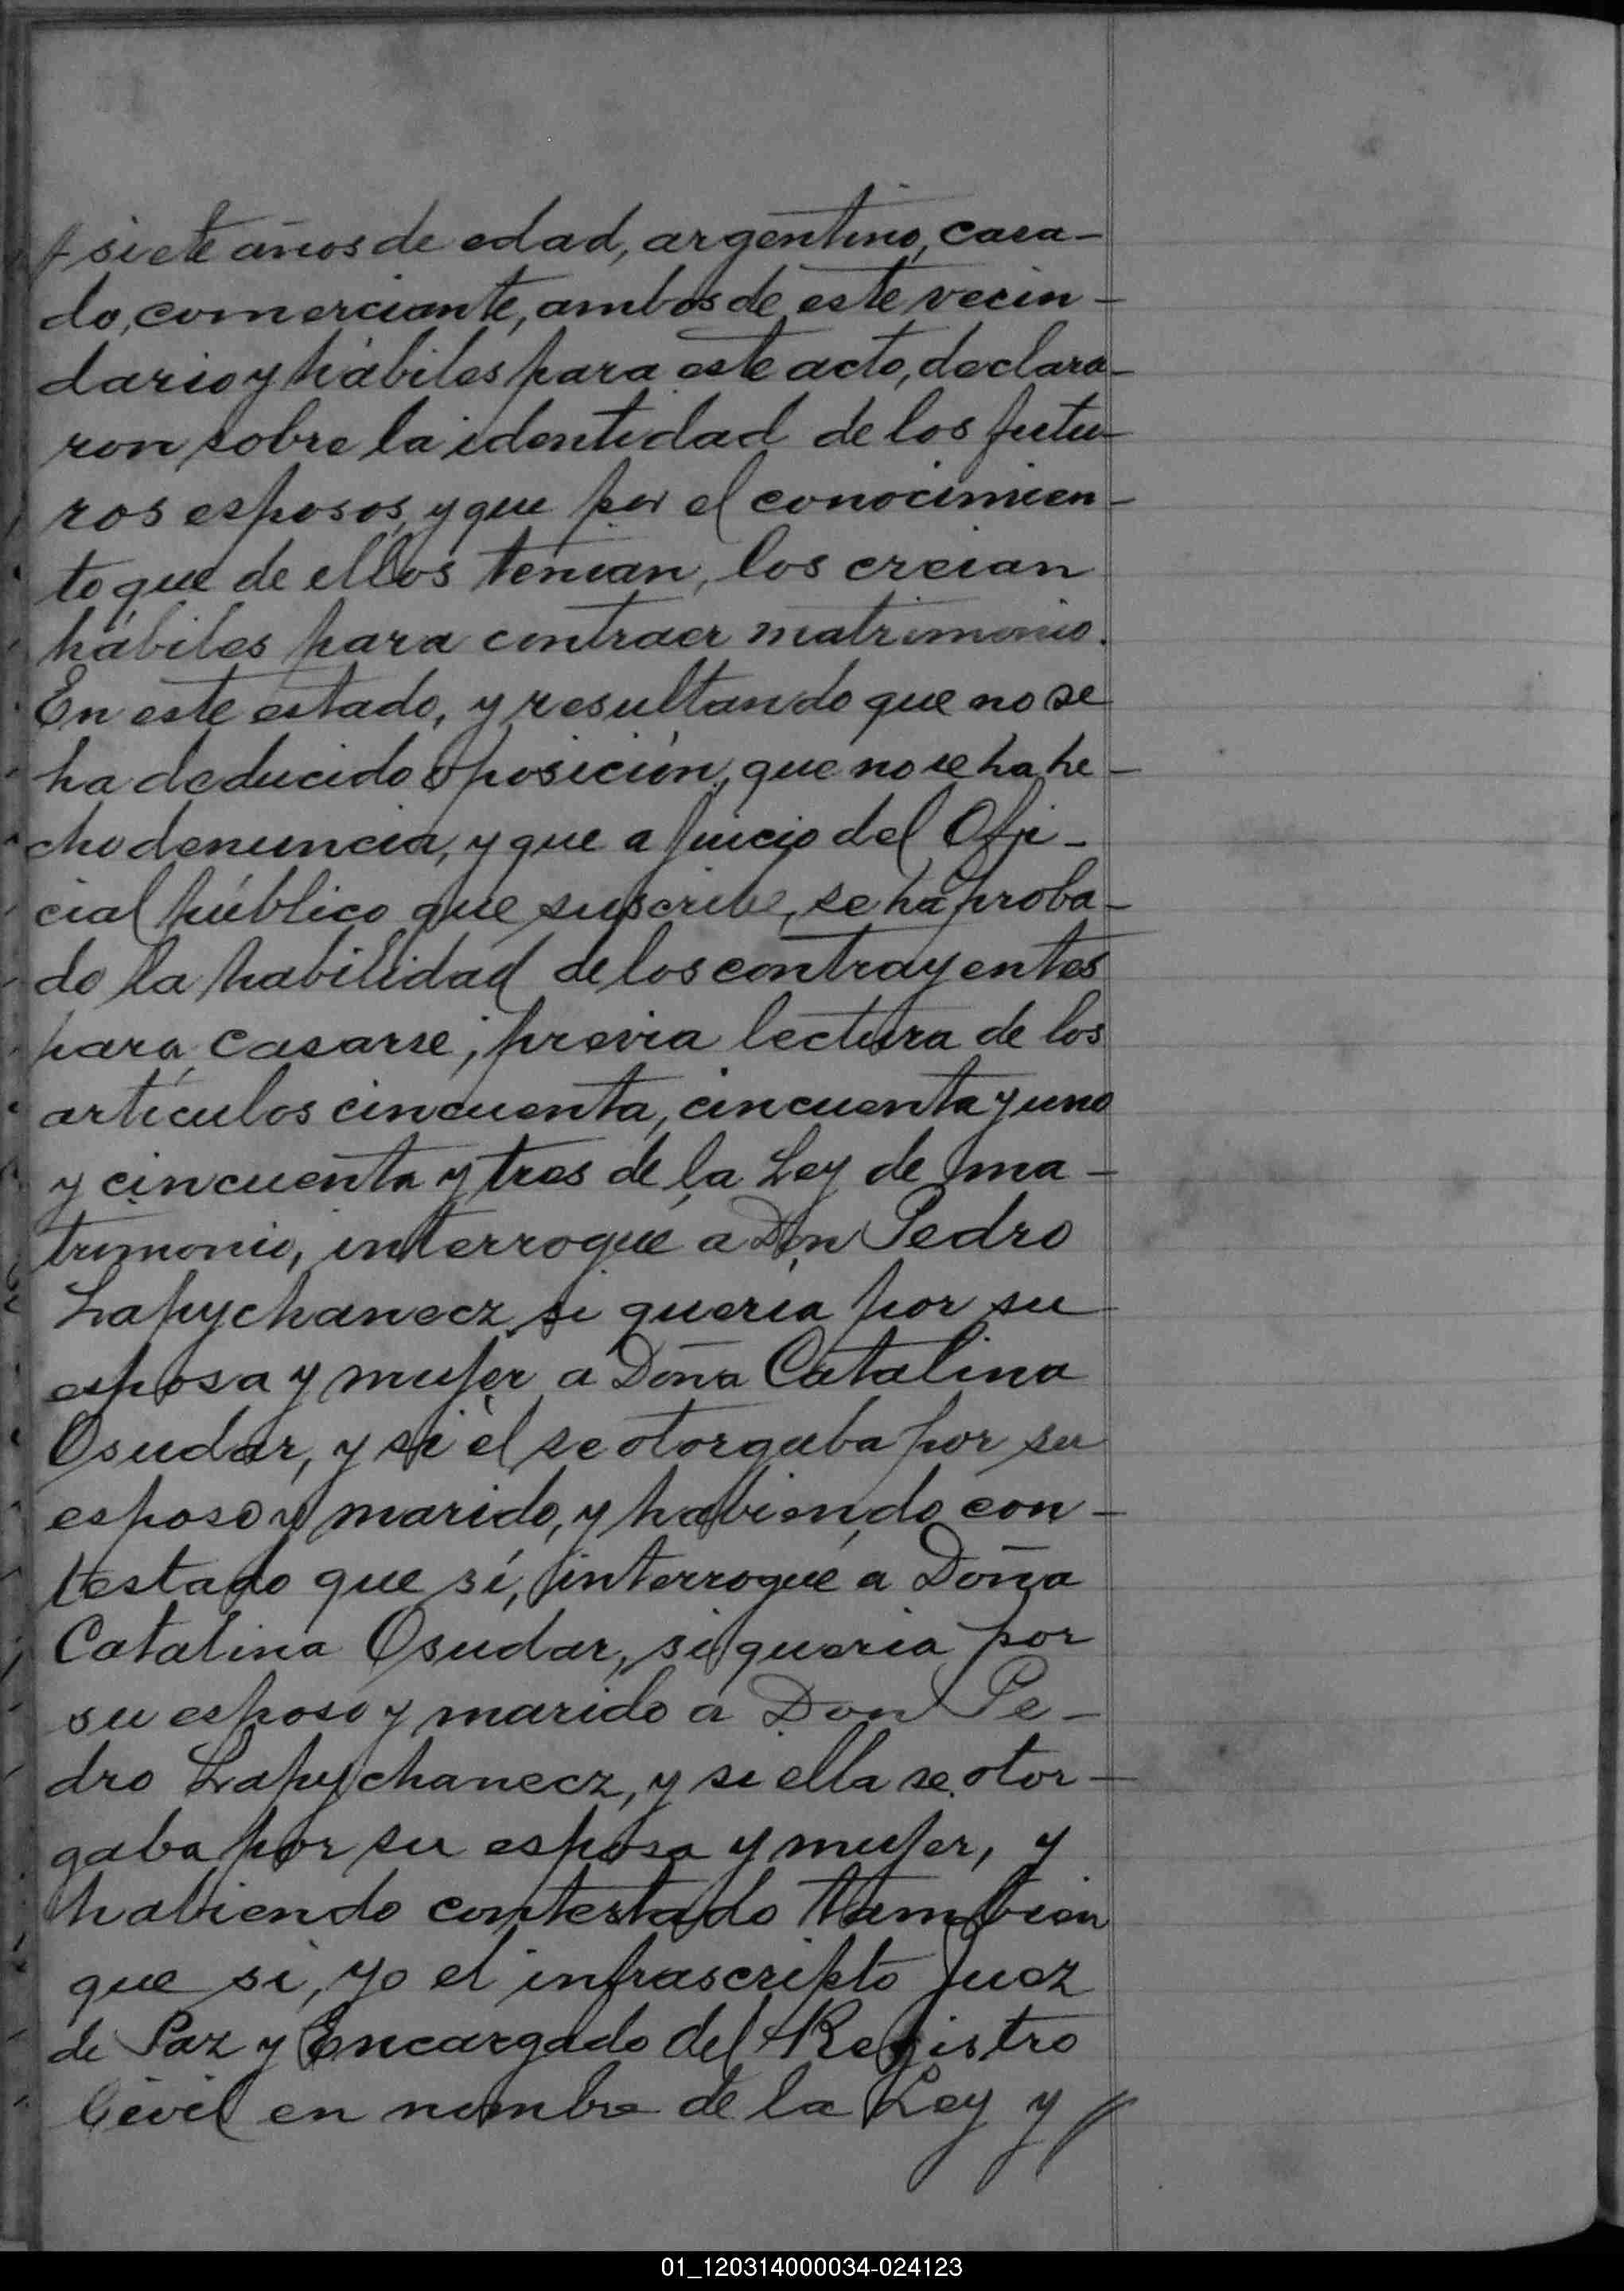 siete años de edad, argentino, casa-
do, comerciante, ambos de este vecin-
dario y hábiles para este acto, declara-
ron sobre la identidad de los futu-
ros esposos, y que por el conocimien-
to que de ellos tenian, los creian
hábiles para contraer matrimonio.
En este estado, y resultando que no se
ha deducido oposición, que no se ha he-
cho denuncia, y que a juicio del Ofi-
cial público que suscribe, se ha proba-
do la habilidad de los contrayentes
para casarse; previa lectura de los
artículos cincuenta, cincuenta y uno
y cincuenta y tres de la Ley de ma-
trimonio, interrogué a Don Pedro
Lapychanecz si quería por su
esposa y mujer a Doña Catalina
Osudar, y si él se otorgaba por su
esposo y marido, y habiendo con-
testado que sí, interrogué a Doña
Catalina Osudar, si queria por
su esposo y marido a Don Pe-
dro Lapychanecz, y si ella se otor-
gaba por su esposa y mujer, y
habiendo contestado tambien
que si, yo el infrascripto Juez
de Paz y Encargado del Registro
Civil en nombre de la Ley y //
01_120314000034-024123